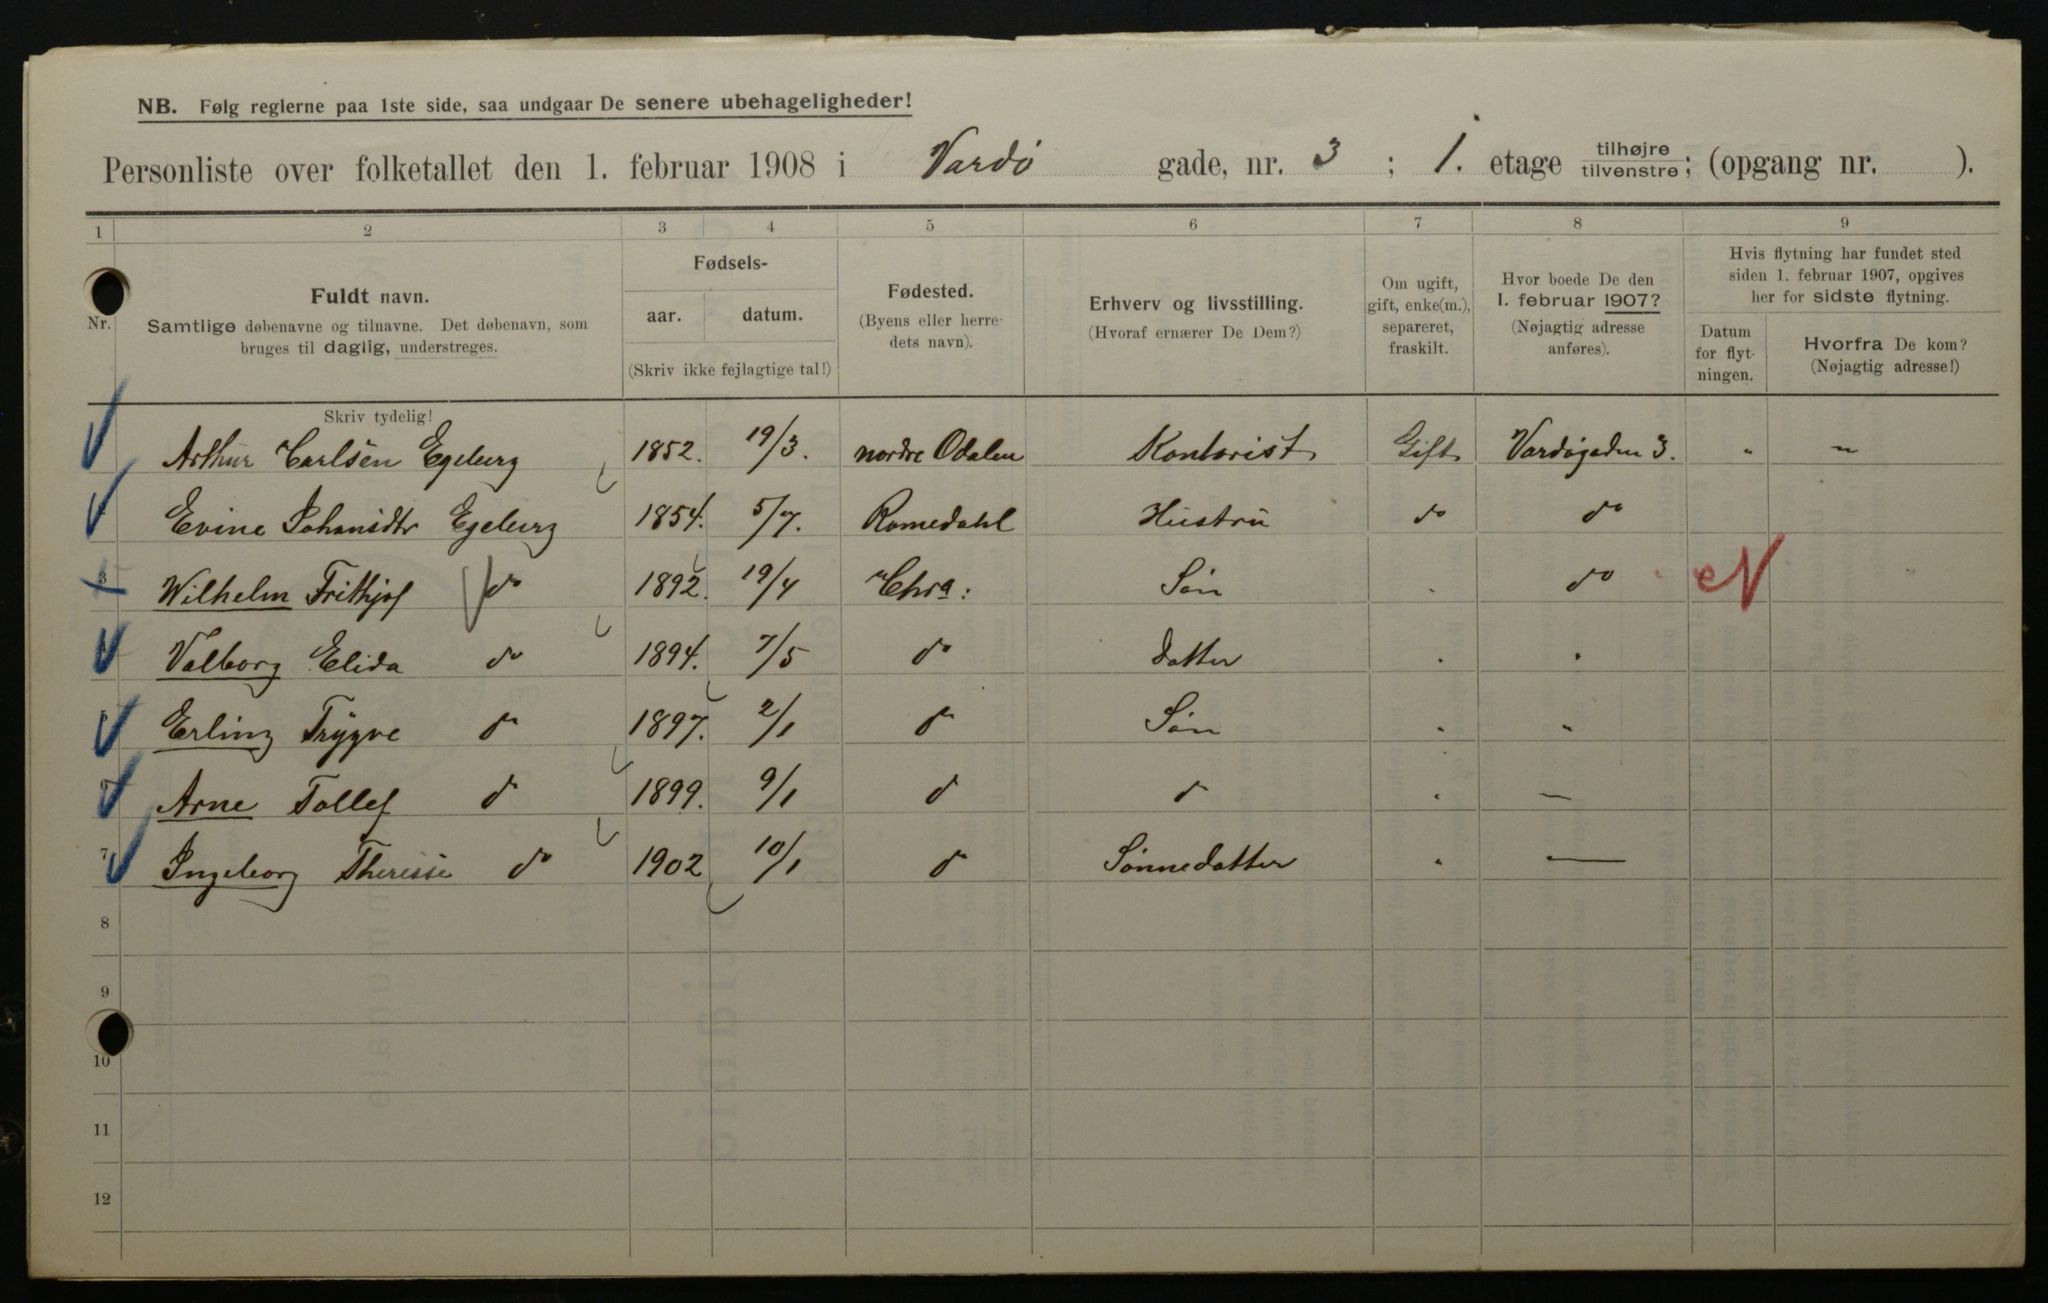 NB. Følg reglerne paa 1ste side, saa undgaar De senere ubehageligheder!
Personliste over folketallet den 1. februar 1908 i Vardø gade, nr. 3 ; 1. etage tilhøjre tilvenstre; (opgang nr. ).
1 2 3 4 5 6 7 8 9
Nr.
Fuldt navn.
Samtlige døbenavne og tilnavne. Det døbenavn, som
bruges til daglig, understreges.
Skriv tydelig!
Fødsels-
aar. datum.
(Skriv ikke fejlagtige tal!)
Fødested.
(Byens eller herre-
dets navn).
Erhverv og livsstilling.
(Hvoraf ernærer De Dem?)
Om ugift,
gift, enke(m.),
separeret,
fraskilt.
Hvor boede De den
1. februar 1907?
(Nøjagtig adresse
anføres).
Hvis flytning har fundet sted
siden 1. februar 1907, opgives
her for sidste flytning.
Datum
for flyt-
ningen.
Hvorfra De kom?
(Nøjagtig adresse!)
Arthur Carlsen Egeberg 1852. 19/3. nordre Odalen Kontorist Gift Vardøgaden 3. " "
Evine Johansdtr Egeberg 1854. 5/7. Romedahl Hustru do do
3 Wilhelm Frithjof do 1892. 19/4 Chra: Søn . do N
Valborg Elida do 1894. 7/5 do Datter . .
Erling Trygve do 1897. 2/1 do Søn " "
6 Arne Tollef do 1899. 9/1 do do . —
7 Ingeborg Theresie do 1902 10/1 do Sønnedatter . —
8
9
10
11
12